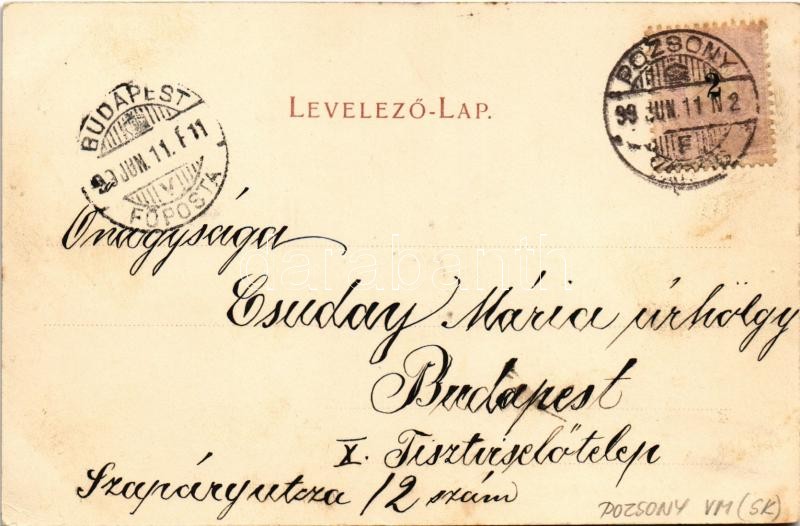 POZSONY
99 JUN. 11 N 2
F
2
BUDAPEST
99 JUN. 11. F 11
V
FŐPOSTA
LEVELEZŐ-LAP.
Őnagysága
darabanth
Csuday Mária úrhölgy
Budapest
X. Tisztviselőtelep
Szapáryutcza 12 szám
POZSONY VM (SK)